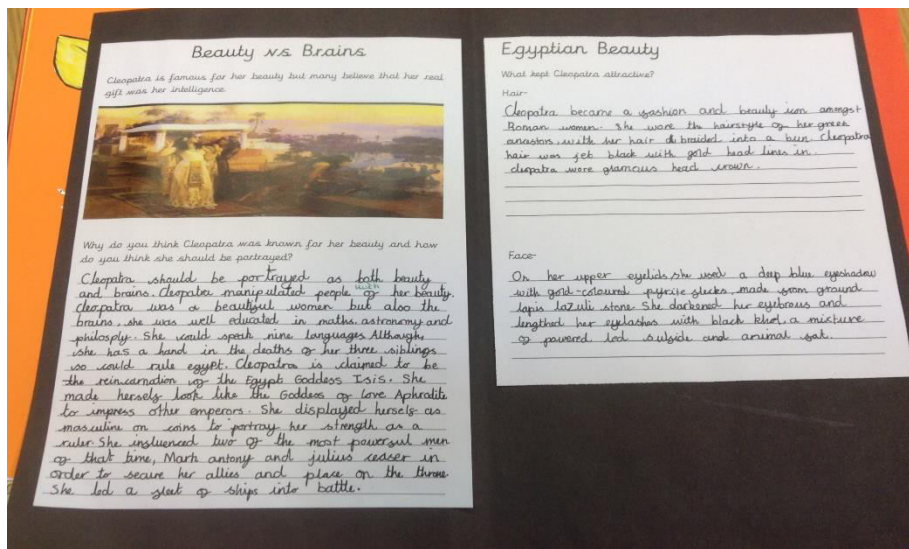 Beauty vs Brains
Cleopatra is famous for her beauty but many believe that her real
gift was her intelligence.
Why do you think Cleopatra was known for her beauty and how
do you think she should be portrayed?
Cleopatra should be portrayed as both beauty
and brains. Cleopatra manipulated people with of her beauty.
cleopatra was a beautiful women but also the
brains, she was well educated in maths, astronomy and
philosply. She could speak nine languages. Although,
she has a hand in the deaths of her three siblings
so could rule egypt. Cleopatra is claimed to be
the reincarnation of the Egypt Goddess Isis. She
made herself look like the Goddess of love Aphrodite
to impress other emperors. She displayed herself as
masculine on coins to portray her strength as a
ruler. She influenced two of the most powerful men
of that time, Mark antony and julius ceaser in
order to secure her allies and place on the throne.
She led a fleet of ships into battle.
Egyptian Beauty
What kept Cleopatra attractive?
Hair-
Cleopatra became a fashion and beauty icon amongst
Roman women. She wore the hairstyle of her greek
ancestors, with her hair braided into a bun. Cleopatra
hair was jet black with gold head lines in.
cleopatra wore glamcus head crown.
Face-
On her upper eyelids she used a deep blue eyeshadow
with gold-coloured pyrite flecks, made from ground
lapis lazuli stone. She darkened her eyebrows and
lengthed her eyelashes with black khol, a mixture
of powered led sulfide and animal fat.